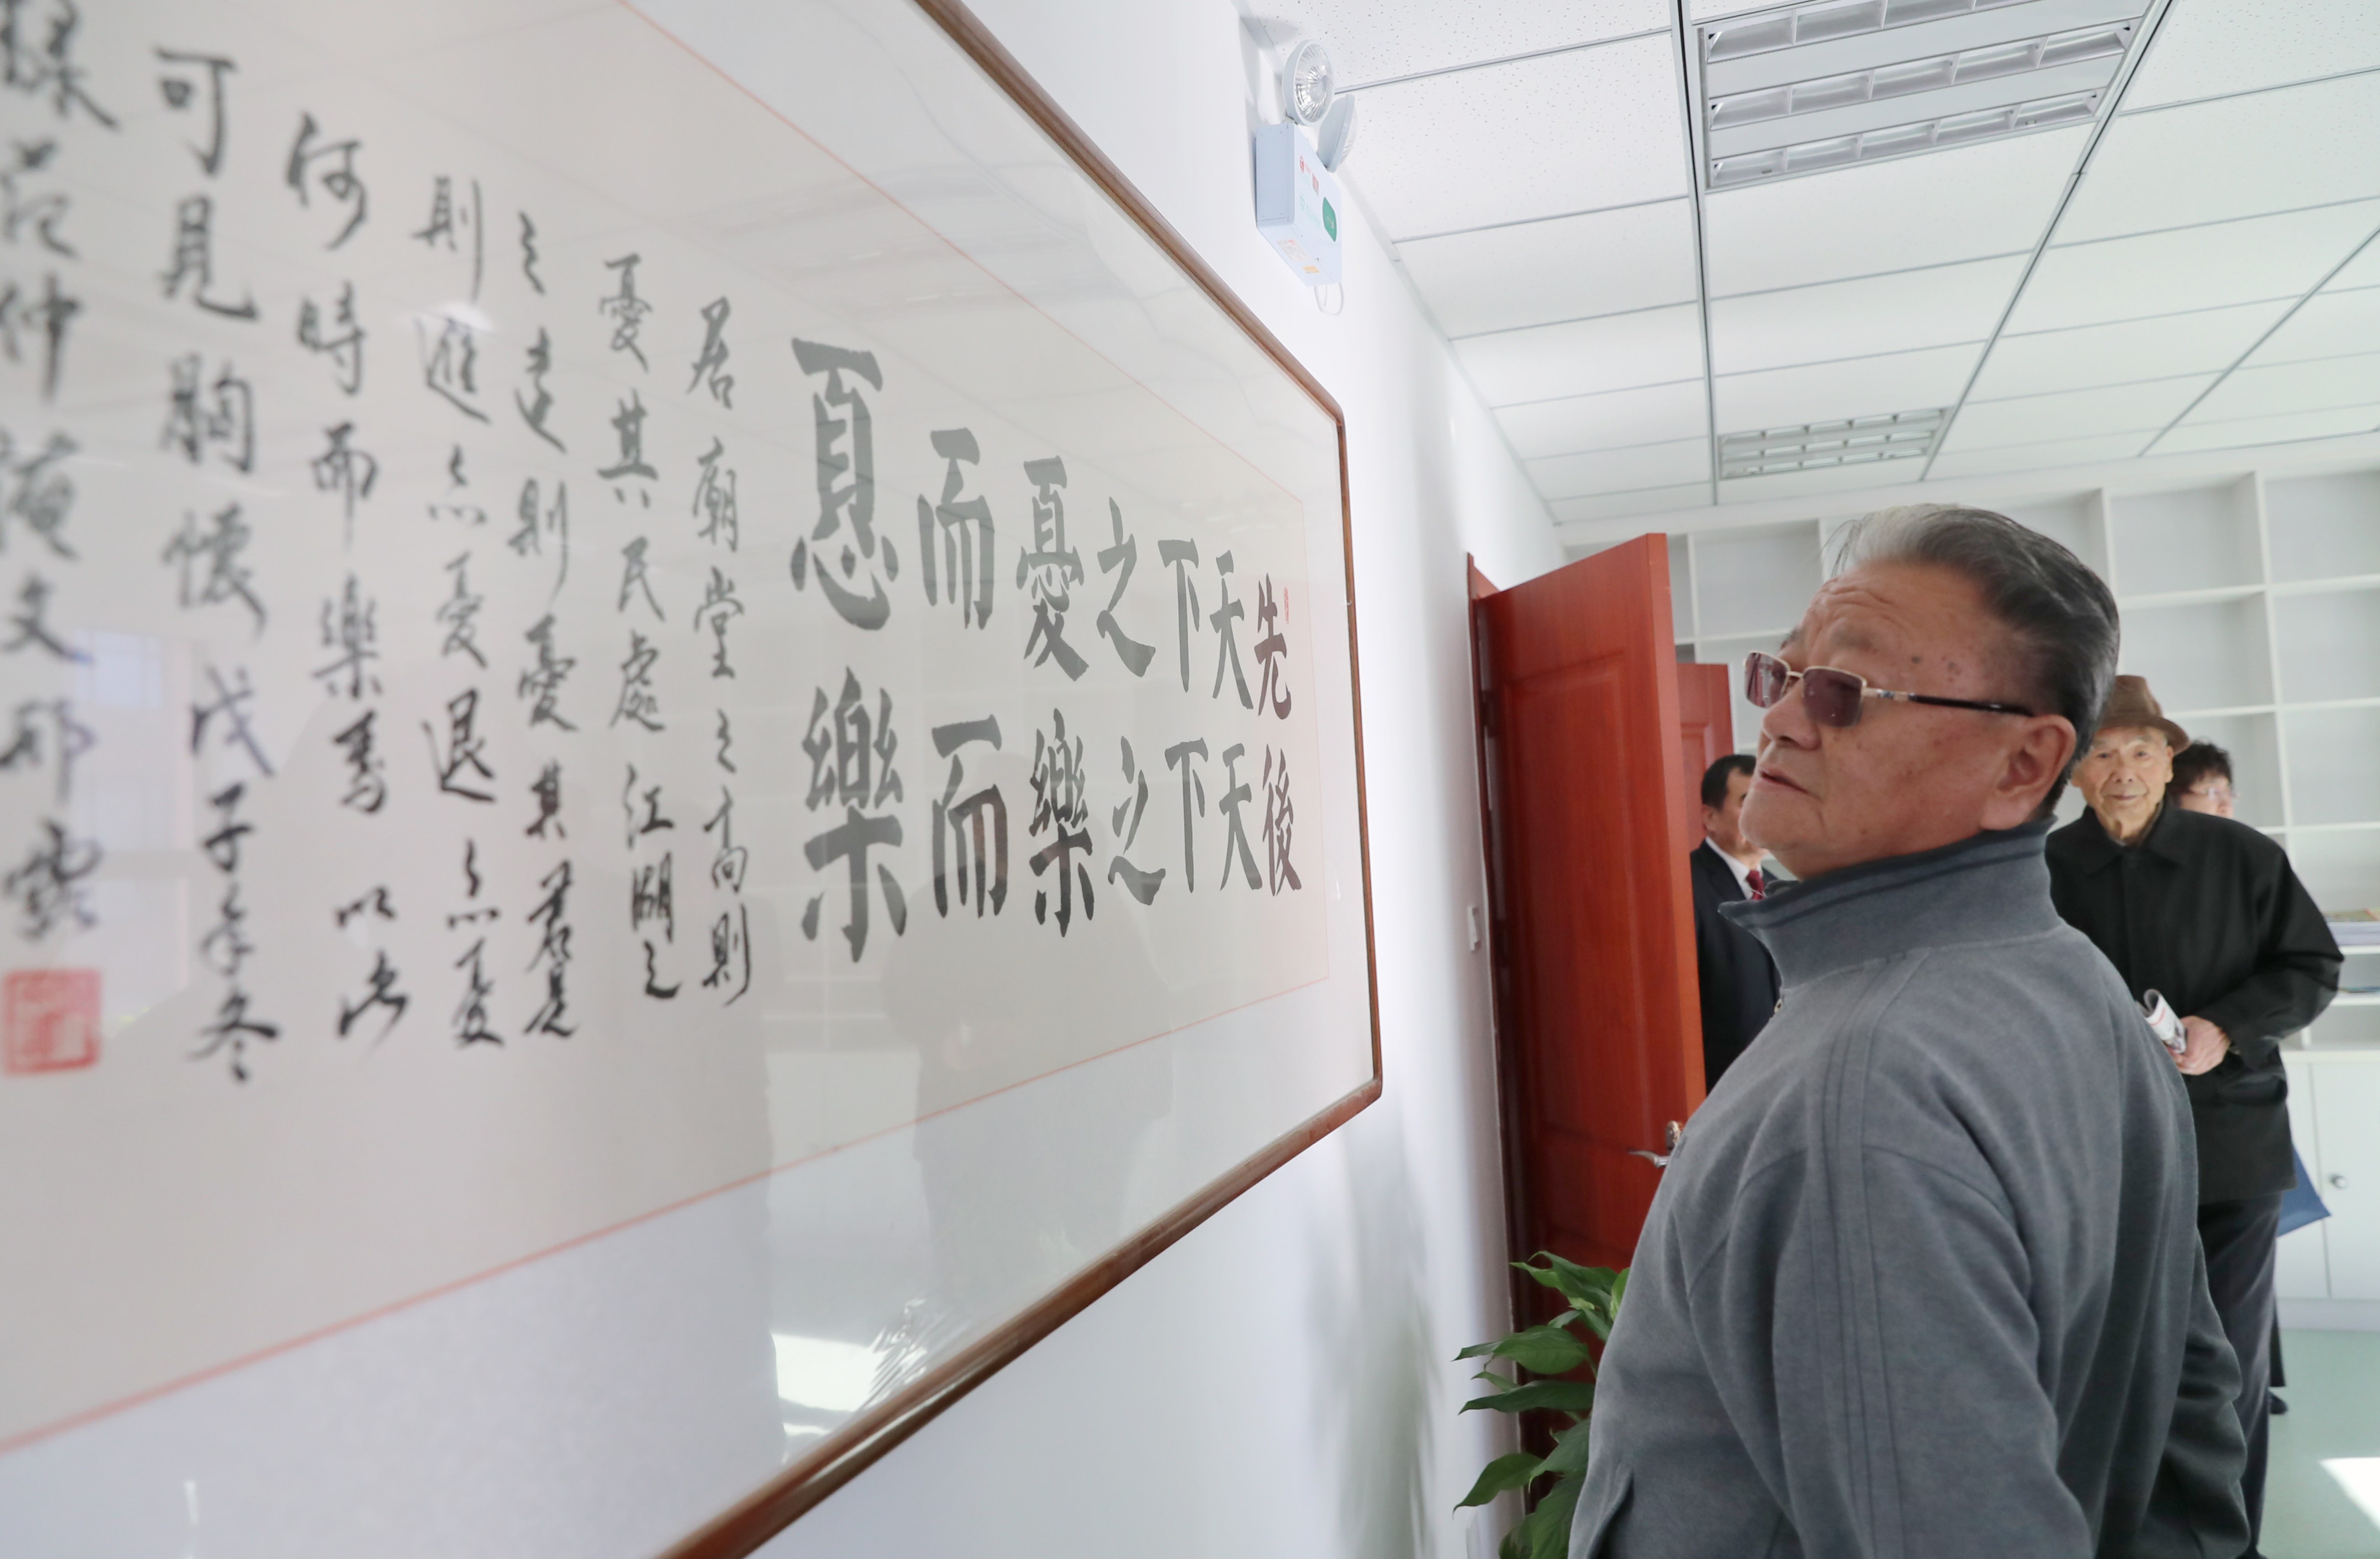 先天下之憂而𢝊
後天下之樂而樂
居廟堂之高則
憂其民處江湖之
之遠則憂其君是
則進亦憂退亦憂
何時而樂焉以此
可見胸懷戊子年冬
范仲淹文邢